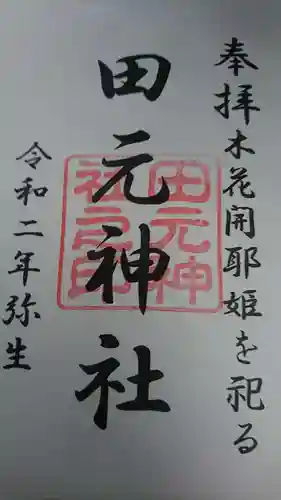 奉拝木花開耶姫を祀る
田元神社
田元神社之印
令和二年弥生